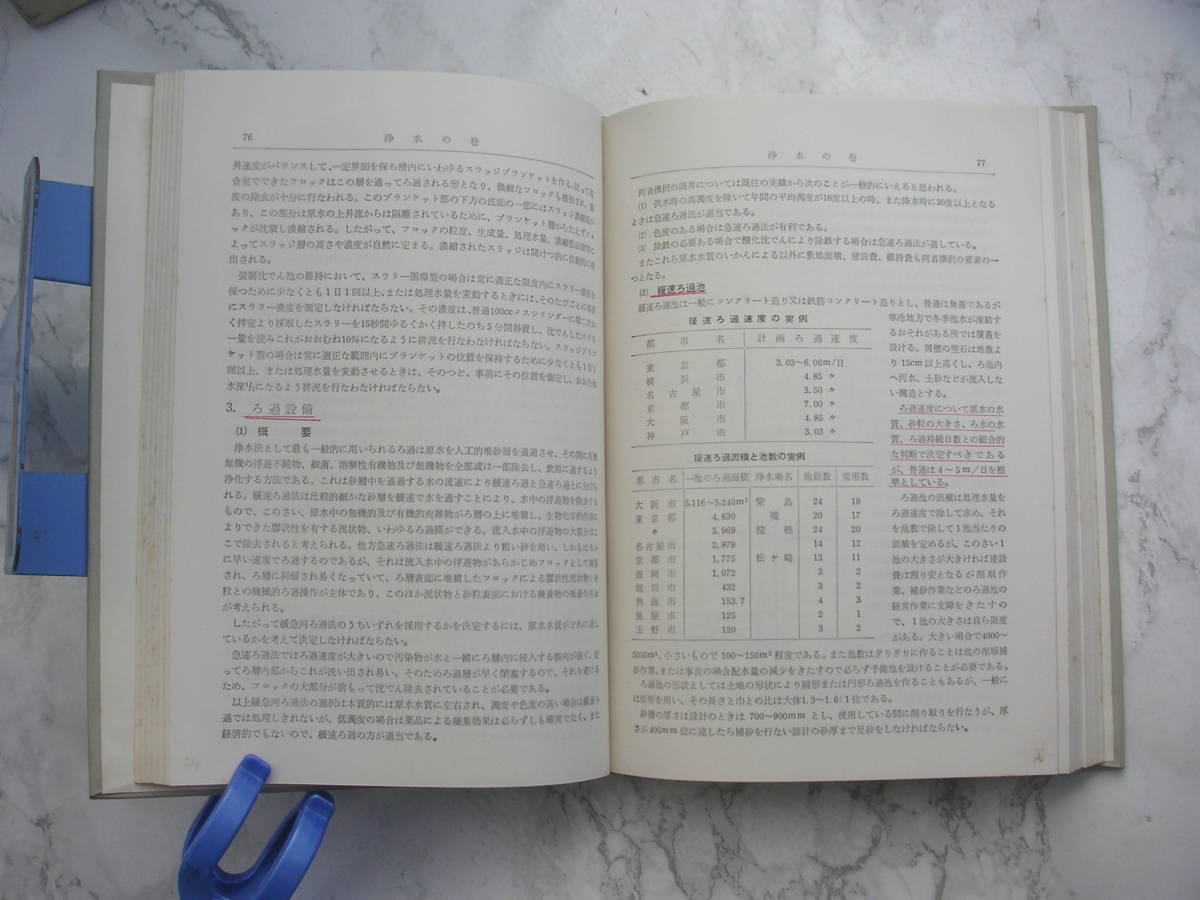 76
浄水の巻
昇速度がバランスして、一定界面を保ち槽内にいわゆるスラッジブランケットを作る。従って混
合室でできたフロックはこの層を通ってろ過される形となり、微細なフロックも捕捉され、
度の除去が十分に行なわれる。このブランケット部の下方の底面の一部にはスラッジ濃縮部が
あり、この部分は原水の上昇流からは隔離されているために、ブランケット層からたえずフロ
ックが沈積し濃縮される。したがって、フロックの粒度、生成量、処理水量、濃縮部面積等に
よってスラッジ層の高さや濃度が自然に定まる。濃縮されたスラッジは間けつ的に自動的に排
出される。
強制沈でん池の維持において、スラリー循環型の場合は常に適正な限度内にスラリー濃度を
保つために少なくとも1日1回以上、または処理水量を変動するときには、そのたびごとに事前
にスラリー濃度を測定しなければならない。その濃度は、普通100ccメスシリンダーに第二次か
く拌室より採取したスラリーを15秒間ゆるくかく拌したのち5分間静置し、沈でんしたスラリ
ー量を読みこれがおおむね10%になるように排泥を行なわなければならない。スラッジブラン
ケット型の場合は常に適正な範囲内にブランケットの位置を保持するために少なくとも1日1
回以上、または処理水量を変動させるときは、そのつど、事前にその位置を測定し、おおむね
水深½になるよう排泥を行なわなければならない。
3. ろ過設備
(1) 概要
浄水法として最も一般的に用いられるろ過は原水を人工的堆砂層を通過させ、その間に有機
無機の浮遊不純物、細菌、溶解性有機物及び無機物を全部或は一部除去し、飲用に適するよう
浄化する方法である。これは砂層中を通過する水の流速により緩速ろ過と急速ろ過とに分けら
れる。緩速ろ過法は比較的細かな砂層を緩速で水を通すことにより、水中の浮遊物を除去する
もので、このさい、原水中の無機的及び有機的夾雑物がろ層の上に堆積し、生物化学的作用に
よりできた膠状性を有する泥状物、いわゆるろ過膜ができる。流入水中の浮遊物の大部分はこ
こで除去されると考えられる。他方急速ろ過法は緩速ろ過法より粗い砂を用い、しかもはるか
に早い速度でろ過するのであるが、それは流入水中の浮遊物があらかじめフロックとして凝集
され、ろ層に抑留され易くなっていて、ろ層表面に堆積したフロックによる膠状性泥状物と砂
粒との機械的ろ過操作が主体であり、このほか泥状物と砂粒表面における凝着物の吸着作用
が考えられる。
したがって緩急何ろ過法のうちいずれを採用するかを決定するには、原水水質がどれに適し
ているかを考えて決定しなければならない。
急速ろ過法ではろ過速度が大きいので汚染物が水と一緒にろ層内に侵入する傾向が強く、従
ってろ層内部からこれが洗い出され易い。そのためろ過層が早く閉塞するので、それを避ける
ため、フロックの大部分が前もって沈でん除去されていることが必要である。
以上緩急ろ過法の選択は本質的には原水水質に左右され、濁度や色度の高い場合は緩速ろ
過では処理しきれないが、低濁度の場合は薬品による凝集効果は必らずしも確実でなく、また
経済的でもないので、緩速ろ過の方が適当である。
浄水の巻
77
両者選択の限界については既往の実績から次のことが一般的にいえると思われる。
(1) 洪水時の高濁度を除いて年間の平均濁度が10度以上の時、また降水時に30度以上となる
ときは急速ろ過法が適当である。
(2) 色度のある場合は急速ろ過法が有利である。
(3) 除鉄の必要ある場合で酸化沈でんにより除鉄する場合は急速ろ過法が適している。
またこれら原水水質のいかんによる以外に敷地面積、建設費、維持費も両者選択の要素の一
つとなる。
(2) 緩速ろ過池
緩速ろ過池は一般にコンクリート造り又は鉄筋コンクリート造りとし、普通は無蓋であるが
寒冷地方で冬季池水が凍結す
るおそれがある所では覆蓋を
設ける。周壁の笠石は地盤よ
り15cm以上高くし、池内
へ汚水、土砂などが流入しな
い構造とする。
緩速ろ過速度の実例
都市名 計画ろ過速度
東京都 3.03~6.06m/日
横浜市 4.85 〃
名古屋市 3.50 〃
京都市 7.00 〃
大阪市 4.85 〃
神戸市 3.03 〃
ろ過速度について原水の水
質、砂粒の大きさ、ろ水の水
質、ろ過持続日数との総合的
な判断で決定すべきである
が、普通は4~5m/日を標
準としている。
緩速ろ過面積と池数の実例
都市名 一池のろ過面積 浄水場名 池総数 常用数
大阪市 5.116~5.240m² 柴島 24 19
東京都 4,630 境 20 17
〃 3,969 淀橋 24 20
名古屋市 2,879 14 12
京都市 1,775 松ケ崎 13 11
盛岡市 1,072 3 2
旭川市 432 3 2
熱海市 153.7 4 3
鹿屋市 125 2 1
玉野市 120 3 2
ろ過池の面積は処理水量を
ろ過速度で除して求め、それ
を池数で除して1池当たりの
面積を定めるが、このさい1
池の大きさが大きければ建設
費は割り安となるが削取作
業、補砂作業などのろ過池の
経営作業に支障をきたすの
で、1池の大きさは自ら限度
がある。大きい場合で4000~
5000m²、小さいもので100~150m²程度である。また池数はぎりぎりに作ることは他の削取補
砂作業、または事故の場合配水量の減少をきたすので必らず予備池を設けることが必要である。
ろ過池の形状としては土地の形状により扇形または円形ろ過池を作ることもあるが、一般に
は矩形を用い、その長さと巾との比は大体1.3~1.6:1位である。
砂層の厚さは設計のときは700~900mmとし、使用している間に削り取りを行なうが、厚
さが400mm位に達したら補砂を行ない設計の砂厚まで足砂をしなければならない。